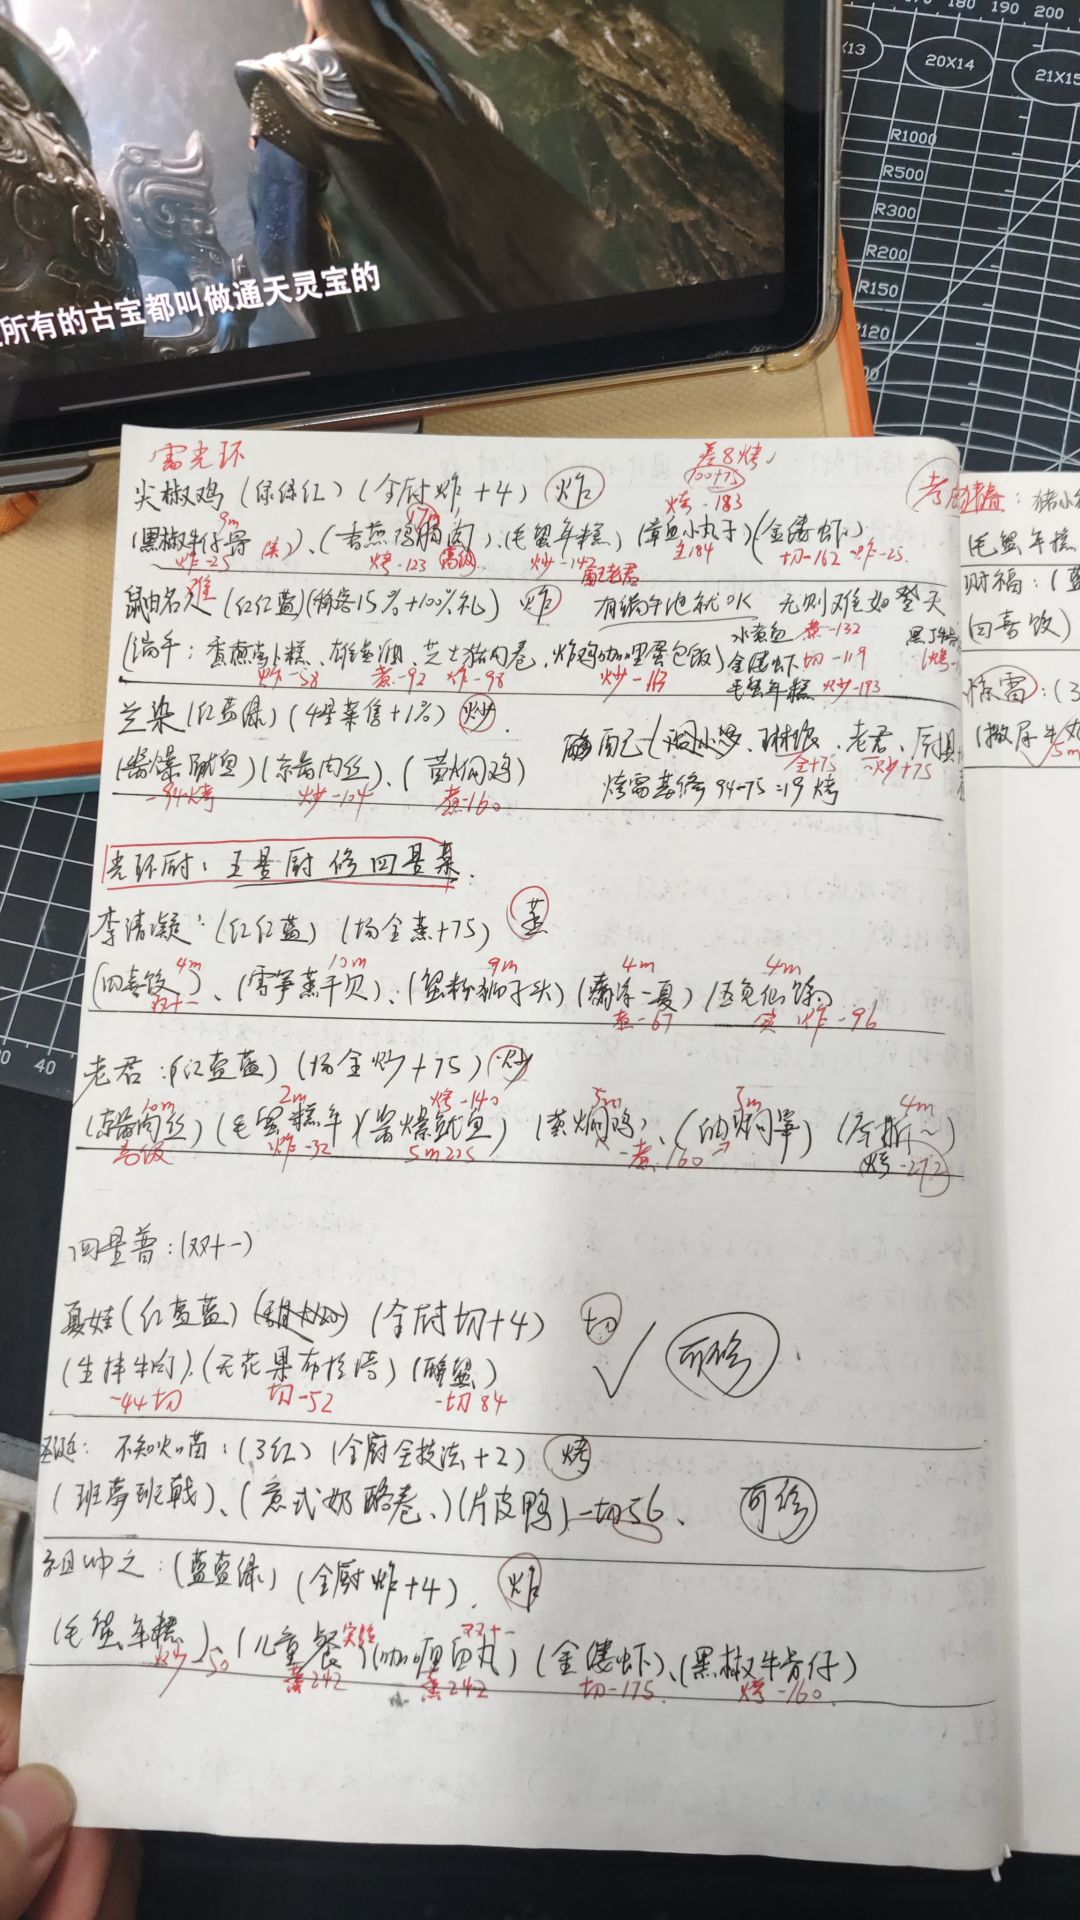 170 180 190 200
X13
20X14
21X15
R1000
R500
R300
R200
R150
120
所有的古宝都叫做通天灵宝的
雷光环
差8烤
100+75
尖椒鸡（绿绿红）（全厨炸+4） 炸
烤-183
9m
17m
（黑椒牛仔骨）、（香煎鸡胸肉）、（毛蟹年糕）（章鱼小丸子）（金缕虾）
炸-25 烤-123 高级 炒-142 184 切-162 炸-25
配老君
难
（红红蓝）（稀客15%+100%礼） 炸 有端午池就OK 无则难如登天
水煮鱼 煮-132
（端午：香煎萝卜糕、雄黄酒、芝士猪肉卷、炸鸡咖喱蛋包饭） 金缕虾 切-119
炸-58 煮-92 炸-98 炒-113 毛蟹年糕 炒-193
兰染（红蓝绿）（4星菜售+1%） 炒
（酱爆鱿鱼）（京酱肉丝）、（黄焖鸡）
-94烤 炒-104 煮-160
老君、
全+75 炒+75
94-75=19 烤
光环厨：五星厨修四星菜
李清凝：（红红蓝）（场全蒸+75） 蒸
4m 10m 9m 4m 4m
（四喜饺）、（雪笋蒸干贝）、（蟹粉狮子头）（清凉一夏）
双十一 煮-67 炸-96
老君：（红蓝蓝）（场全炒+75） 炒
10m 2m 烤-140 5m 4m
（京酱肉丝）（毛蟹糕年）（酱爆鱿鱼）（黄焖鸡）、（油焖笋）
高级 炸-32 5m225 煮160 烤-272
四星普：（双十一）
夏娃（红蓝蓝） （全厨切+4） 切
（生拌牛肉）、（无花果布拉塔）（醉蟹） 可修
-44切 切-52 -切84
圣诞：不知火茵：（3红）（全厨全技法+2） 烤
（班夢班戟）、（意式奶酪卷、）（片皮鸭）-切56、 可修
祖冲之：（蓝蓝绿）（全厨炸+4） 炸
双十一
（毛蟹年糕）、（儿童餐）（咖喱鱼丸）（金缕虾）、（黑椒牛骨仔）
炒-50 蒸242 煮242 切-175 烤-160
毛蟹年糕
财福：（蓝
（四喜饺）
惊雷：（3
（撒尿牛丸
5m